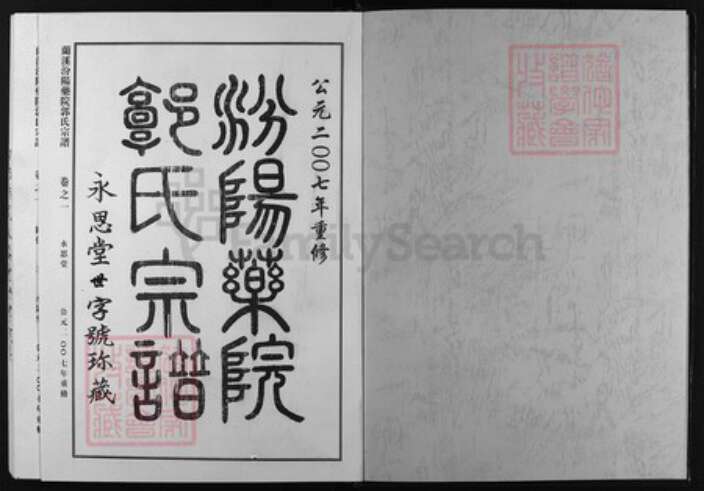 公元二〇〇七年重修
汾陽藥院
郭氏宗譜
永思堂世字號珍藏
蘭溪汾陽藥院郭氏宗譜 卷之一 永思堂 公元二〇〇七年重修
FamilySearch